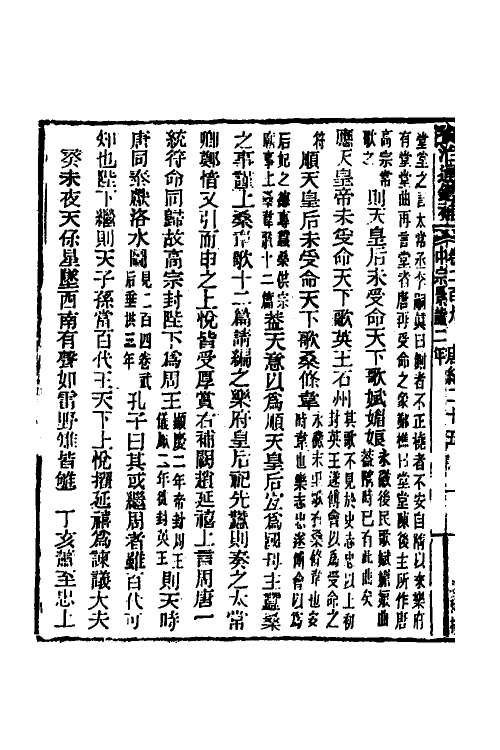 堂堂之言太常丞李嗣真曰側者不正撓者不安自隋以來樂府
有堂堂曲再言堂者唐再受命之象鄭樵曰堂堂陳後主所作唐
高宗常
歌之
則天皇后未受命天下歌娬媚娘
永徽後民歌娬媚娘曲
蓋隋時已有此曲矣
應天皇帝未受命天下歌英王石州
其歌不見於史志忠以上初
封英王遂傅會以爲受命之
符
順天皇后未受命天下歌桑條韋
永徽末里歌有桑條韋也女
時韋也樂志忠遂傅會以爲
后妃之德專蠶桑供宗
廟事上桑韋歌十二篇
蓋天意以爲順天皇后宜爲國母主蠶桑
之事謹上桑韋歌十二篇請編之樂府皇后祀先蠶則奏之太常
卿鄭愔又引而申之上悅皆受厚賞右補闕趙延禧上言周唐一
統符命同歸故高宗封陛下爲周王
顯慶二年帝封周王
儀鳳二年徙封英王
則天時
唐同泰獻洛水圖
見二百四卷武
后垂拱三年
孔子曰其或繼周者雖百代可
知也陛下繼則天子孫當百代王天下上悅擢延禧爲諫議大夫
癸未夜天保星墜西南有聲如雷野雉皆雊
丁亥蕭至忠上